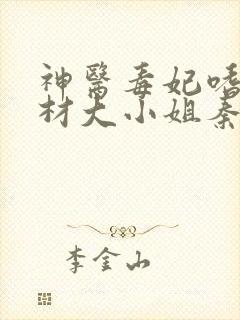 神醫毒妃嗜
材大小姐秦
李金山